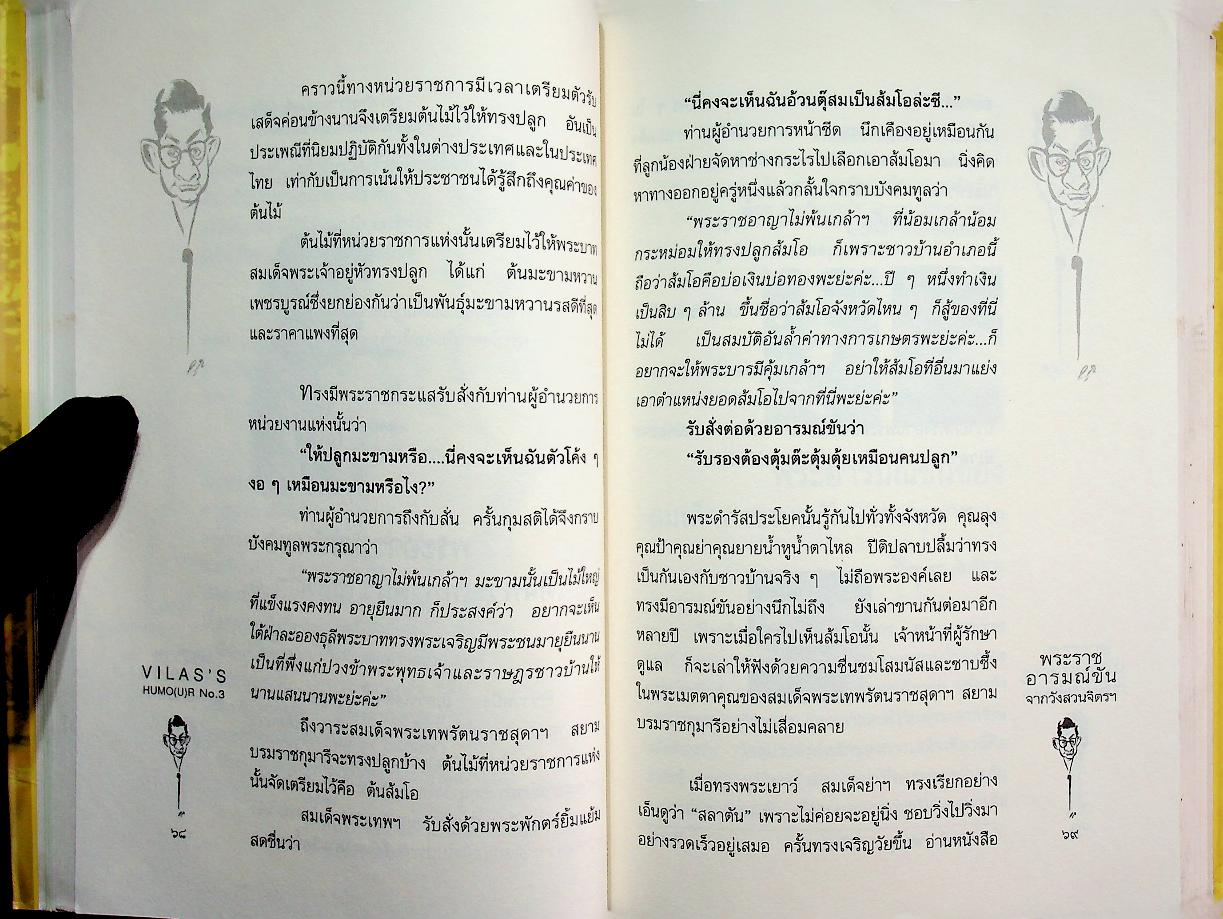 คราวนี้ทางหน่วยราชการมีเวลาเตรียมตัวรับ
เสด็จค่อนข้างนานจึงเตรียมต้นไม้ไว้ให้ทรงปลูก อันเป็น
ประเพณีที่นิยมปฏิบัติกันทั้งในต่างประเทศและในประเทศ
ไทย เท่ากับเป็นการเน้นให้ประชาชนได้รู้สึกถึงคุณค่าของ
ต้นไม้
ต้นไม้ที่หน่วยราชการแห่งนั้นเตรียมไว้ให้พระบาท
สมเด็จพระเจ้าอยู่หัวทรงปลูก ได้แก่ ต้นมะขามหวาน
เพชรบูรณ์ซึ่งยกย่องกันว่าเป็นพันธุ์มะขามหวานรสดีที่สุด
และราคาแพงที่สุด
ทรงมีพระราชกระแสรับสั่งกับท่านผู้อำนวยการ
หน่วยงานแห่งนั้นว่า
“ให้ปลูกมะขามหรือ....นี่คงจะเห็นฉันตัวโค้ง ๆ
งอ ๆ เหมือนมะขามหรือไง?”
ท่านผู้อำนวยการถึงกับสั่น ครั้นกุมสติได้จึงกราบ
บังคมทูลพระกรุณาว่า
“พระราชอาญาไม่พ้นเกล้าฯ มะขามนั้นเป็นไม้ใหญ่
ที่แข็งแรงคงทน อายุยืนมาก ก็ประสงค์ว่า อยากจะเห็น
ใต้ฝ่าละอองธุลีพระบาททรงพระเจริญมีพระชนมายุยืนนาน
เป็นที่พึ่งแก่ปวงข้าพระพุทธเจ้าและราษฎรชาวบ้านให้
นานแสนนานพะย่ะค่ะ”
ถึงวาระสมเด็จพระเทพรัตนราชสุดาฯ สยาม
บรมราชกุมารีจะทรงปลูกบ้าง ต้นไม้ที่หน่วยราชการแห่ง
นั้นจัดเตรียมไว้คือ ต้นส้มโอ
สมเด็จพระเทพฯ รับสั่งด้วยพระพักตร์ยิ้มแย้ม
สดชื่นว่า
VILAS'S
HUMO(U)R No.3
๖๘
“นี่คงจะเห็นฉันอ้วนตุ๊สมเป็นส้มโอล่ะซี...”
ท่านผู้อำนวยการหน้าซีด นึกเคืองอยู่เหมือนกัน
ที่ลูกน้องฝ่ายจัดหาช่างกระไรไปเลือกเอาส้มโอมา นิ่งคิด
หาทางออกอยู่ครู่หนึ่งแล้วกลั้นใจกราบบังคมทูลว่า
“พระราชอาญาไม่พ้นเกล้าฯ ที่น้อมเกล้าน้อม
กระหม่อมให้ทรงปลูกส้มโอ ก็เพราะชาวบ้านอำเภอนี้
ถือว่าส้มโอคือบ่อเงินบ่อทองพะย่ะค่ะ...ปี ๆ หนึ่งทำเงิน
เป็นสิบ ๆ ล้าน ขึ้นชื่อว่าส้มโอจังหวัดไหน ๆ ก็สู้ของที่นี่
ไม่ได้ เป็นสมบัติอันล้ำค่าทางการเกษตรพะย่ะค่ะ...ก็
อยากจะให้พระบารมีคุ้มเกล้าฯ อย่าให้ส้มโอที่อื่นมาแย่ง
เอาตำแหน่งยอดส้มโอไปจากที่นี่พะย่ะค่ะ”
รับสั่งต่อด้วยอารมณ์ขันว่า
“รับรองต้องตุ้มต๊ะตุ้มตุ้ยเหมือนคนปลูก”
พระดำรัสประโยคนั้นรู้กันไปทั่วทั้งจังหวัด คุณลุง
คุณป้าคุณย่าคุณยายน้ำหูน้ำตาไหล ปีติปลาบปลื้มว่าทรง
เป็นกันเองกับชาวบ้านจริง ๆ ไม่ถือพระองค์เลย และ
ทรงมีอารมณ์ขันอย่างนึกไม่ถึง ยังเล่าขานกันต่อมาอีก
หลายปี เพราะเมื่อใครไปเห็นส้มโอนั้น เจ้าหน้าที่ผู้รักษา
ดูแล ก็จะเล่าให้ฟังด้วยความชื่นชมโสมนัสและซาบซึ้ง
ในพระเมตตาคุณของสมเด็จพระเทพรัตนราชสุดาฯ สยาม
บรมราชกุมารีอย่างไม่เสื่อมคลาย
เมื่อทรงพระเยาว์ สมเด็จย่าฯ ทรงเรียกอย่าง
เอ็นดูว่า “สลาตัน” เพราะไม่ค่อยจะอยู่นิ่ง ชอบวิ่งไปวิ่งมา
อย่างรวดเร็วอยู่เสมอ ครั้นทรงเจริญวัยขึ้น อ่านหนังสือ
พระราช
อารมณ์ขัน
จากวังสวนจิตรฯ
๖๙